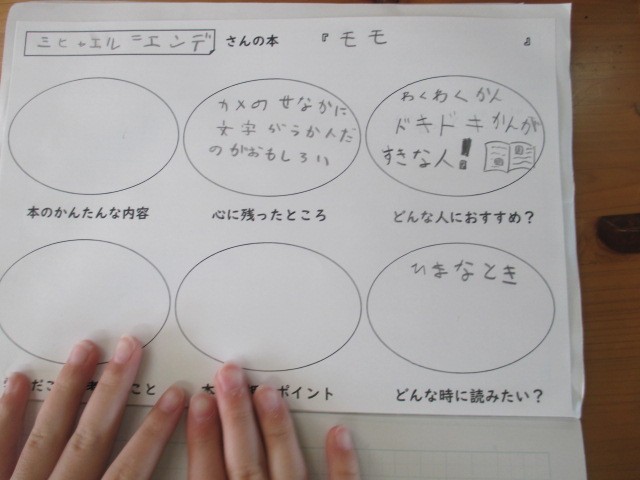 ミヒャエル=エンデ さんの本 『モモ 』
カメの せなかに
文字 がうかんだ
のがおもしろい
わくわくかん
ドキドキかんが
すきな人!
本のかんたんな内容 心に残ったところ どんな人におすすめ?
ひまなとき
だこ こと 本 ポイント どんな時に読みたい?